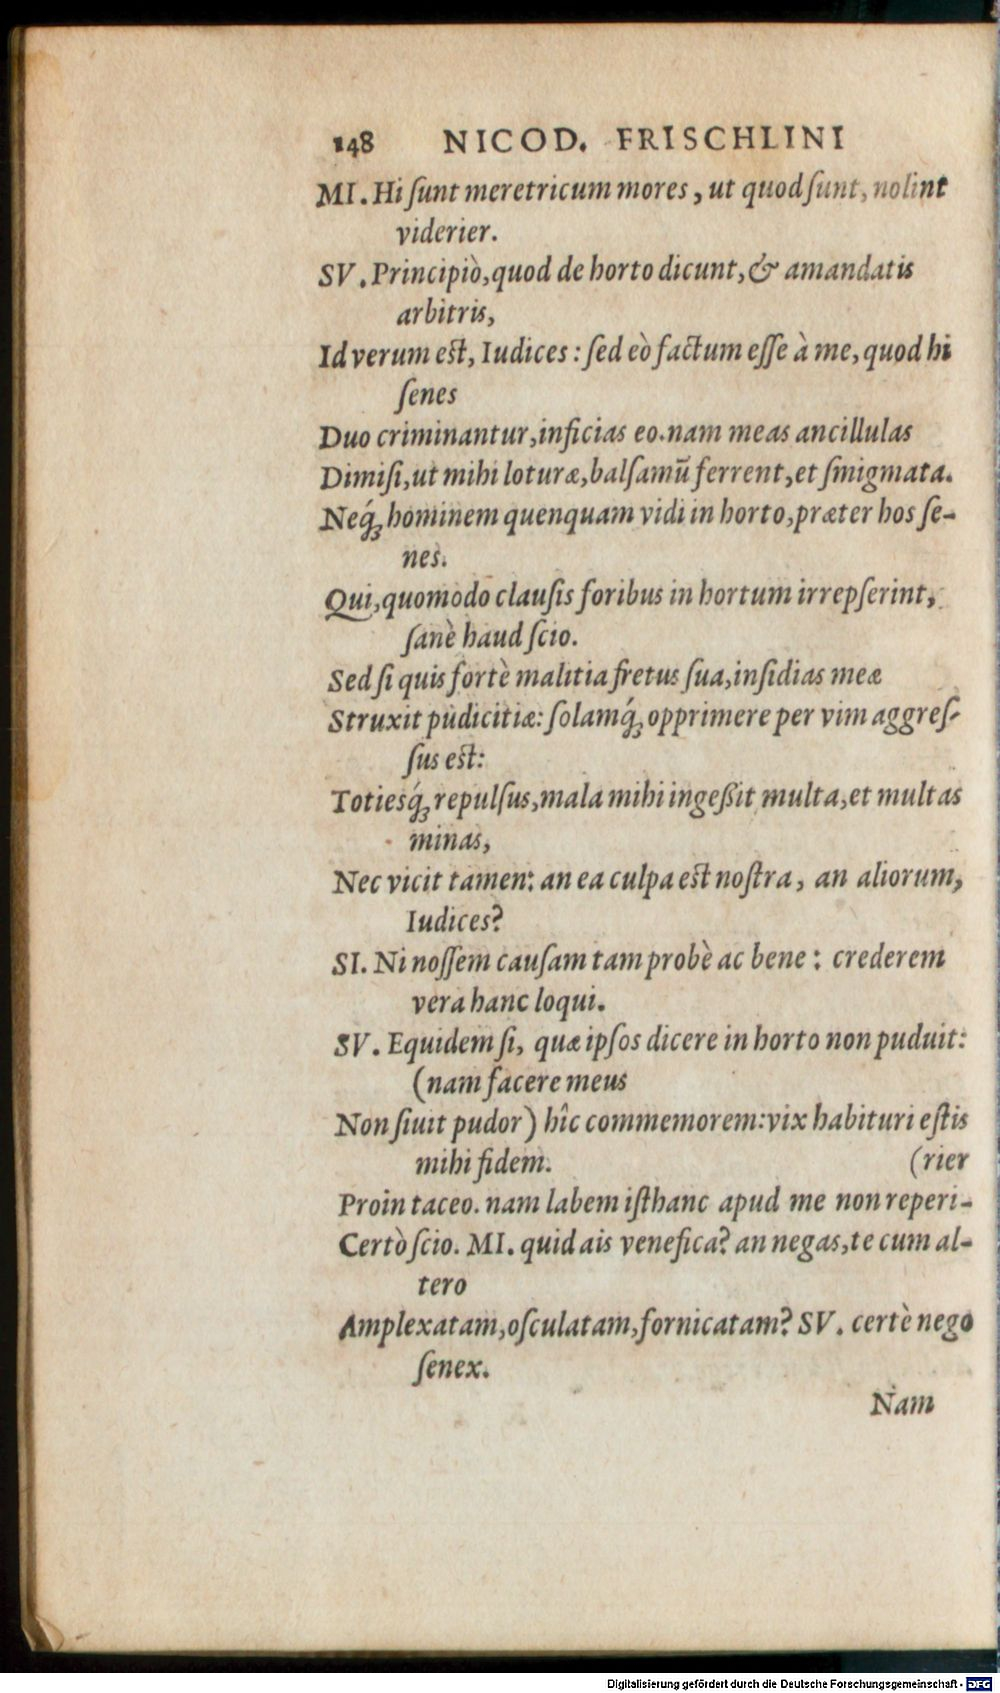 148 NICOD. FRISCHLINI
MI. Hi ſunt meretricum mores, ut quod ſunt, nolint
viderier.
SV. Principiò, quod de horto dicunt, & amandatis
arbitris,
Id verum est, Iudices: ſed eò factum eſſe à me, quod hi
ſenes
Duo criminantur, inficias eo. nam meas ancillulas
Dimiſi, ut mihi loturæ, balſamū ferrent, et ſmigmata.
Neq́ꝫ hominem quenquam vidi in horto, præter hos ſe-
nes.
Qui, quomodo clauſis foribus in hortum irrepſerint,
ſanè haud ſcio.
Sed ſi quis fortè malitia fretus ſua, inſidias meæ
Struxit pudicitiæ: ſolamq́ꝫ opprimere per vim aggreſ-
ſus est:
Totiesq́ꝫ repulſus, mala mihi ingeßit multa, et multas
minas,
Nec vicit tamen: an ea culpa est noſtra, an aliorum,
Iudices?
SI. Ni noſſem cauſam tam probè ac bene: crederem
vera hanc loqui.
SV. Equidem ſi, quæ ipſos dicere in horto non puduit:
(nam facere meus
Non ſiuit pudor) hîc commemorem: vix habituri eſtis
mihi fidem. (rier
Proin taceo. nam labem iſthanc apud me non reperi-
Certò ſcio. MI. quid ais venefica? an negas, te cum al-
tero
Amplexatam, oſculatam, fornicatam? SV. certè nego
ſenex.
Nam
Digitalisierung gefördert durch die Deutsche Forschungsgemeinschaft - DFG